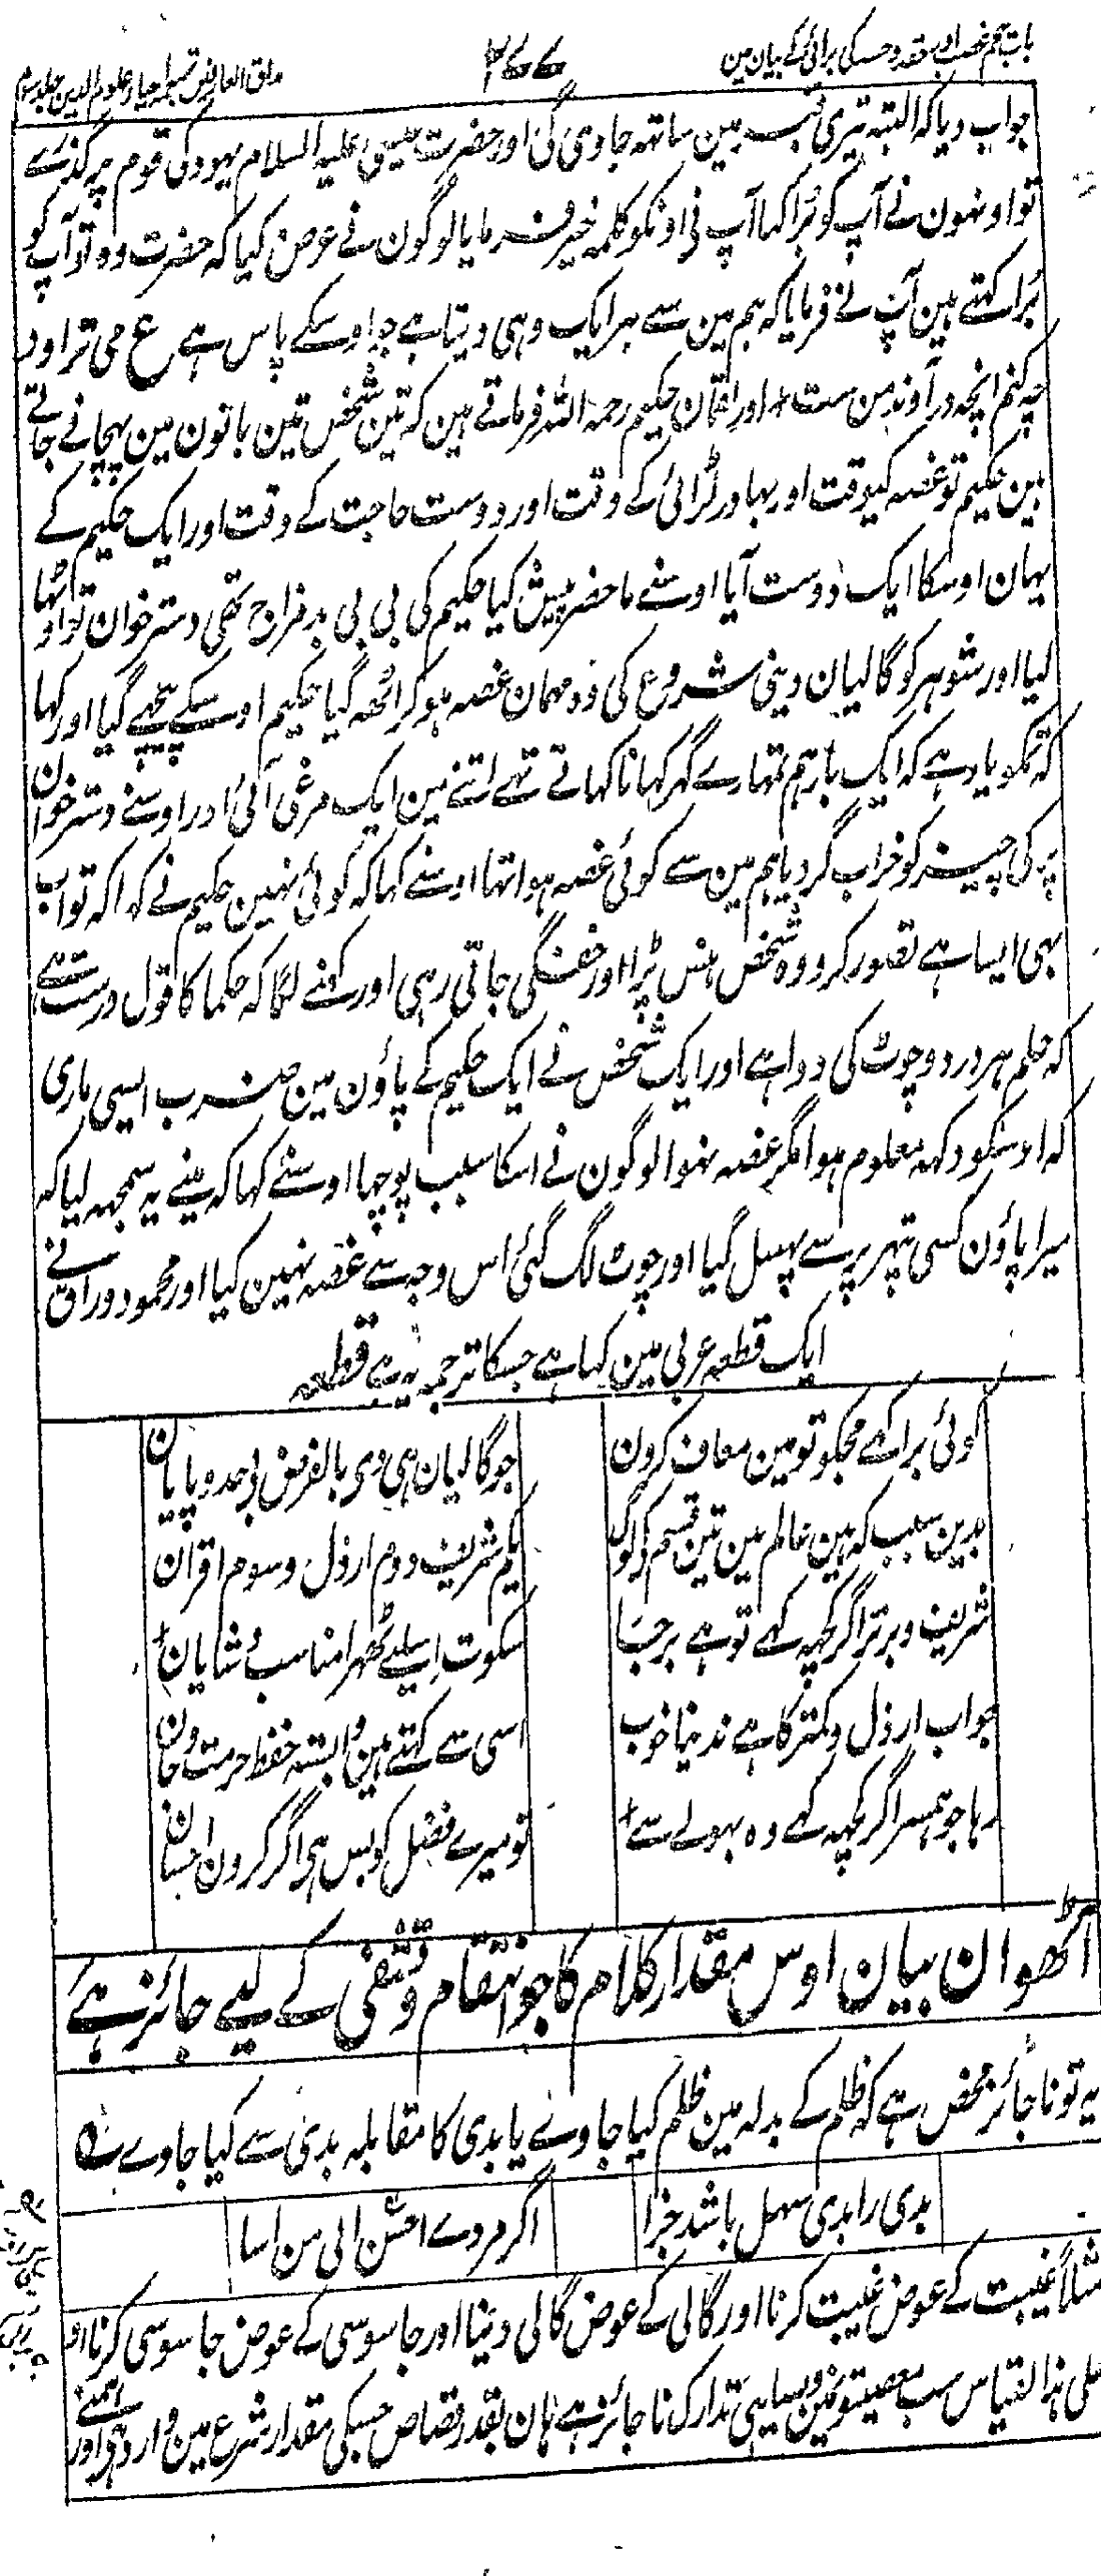 باب پنجم غضب اور حقد و حسد کی برائی کے بیان مین
۲۷۷
مذاق العارفین ترجمہ احیاء علوم الدین جلد سوم
جواب دیا کہ البتہ تیری قبر مین ساتھ جاوی گی اور حضرت عیسی علیہ السلام یہود کی قوم پر گذرے
تو اونہون نے آپ کو بُرا کہا آپ نی اونکو کلمہ خیر فرمایا لوگون نے عرض کیا کہ حضرت وہ تو آپ کو
بُرا کہتے ہین آپ نے فرمایا کہ ہم مین سے ہر ایک وہی دیتا ہے جو اوسکے پاس ہے ع می تراود
چہ کنم انچہ در آوند من ست + اور لقمان حکیم رحمہ اللہ فرماتے ہین کہ تین شخص تین باتون مین پہچانے جاتے
ہین حکیم تو غصہ کیوقت اور بہادر لڑائی کے وقت اور دوست حاجت کے وقت اور ایک حکیم کے
یہان اوسکا ایک دوست آیا اوسنے ماحضر پیش کیا حکیم کی بی بی بدمزاج تھی دسترخوان تو اوٹھا
لیا اور شوہر کو گالیان دینی شروع کی وہ مہمان غصہ ہو کر اٹھ گیا حکیم اوسکے پیچھے گیا اور کہا
کہ تمکو یاد ہے کہ ایک بار ہم تمہارے گھر کہانا کہاتے تھے اتنے مین ایک مرغی آئی اور اوسنے دسترخوان
پر کی چیز کو خراب کردیا ہم مین سے کوئی غصہ ہوا تہا اوسنے کہا کہ کوئی نہین حکیم نے کہا کہ تو اب
بہی ایسا ہے تصور کرو وہ شخص ہنس پڑا اور خفگی جاتی رہی اور کہنے لگا کہ حکما کا قول درست ہے
کہ حلم ہر درد و چوٹ کی دوا ہے اور ایک شخص نے ایک حکیم کے پاؤن مین ضرب ایسی ماری
کہ اوسکو دکہہ معلوم ہوا مگر غصہ نہوا لوگون نے اسکا سبب پوچہا اوسنے کہا کہ مینے یہ سمجہہ لیا کہ
میرا پاؤن کسی پتھر پر سے پہسل گیا اور چوٹ لگ گئی اس وجہ سے غصہ نہین کیا اور محمود وراق نے
ایک قطعہ عربی مین کہا ہے جسکا ترجمہ یہ ہے قطعہ
کوئی برا کہے مجکو تو مین معاف کرون
جو گالیان ہی دی بالفرض بی حد و پایان
بدین سبب کہ ہین عالم مین تین قسم کے لوگ
یکم شریف دوم ارذل و سوم اقران
شریف و برتر اگر کچہہ کہے تو ہے برجا
سکوت اسلیے ٹھہرا مناسب و شایان
جواب ارذل و کمتر کا ہے ندینا خوب
اسی سے کہتے ہین وابستہ حفظ حرمت جان
رہا جو ہمسر اگر کچہہ کہے وہ بہولے سے +
تو میرے فضل کو بس ہی اگر کرون احسان
آٹھوان بیان اوس مقدار کلام کا جو انتقام و تشفی کے لیے جائز ہے
یہ تو ناجائز محض ہے کہ ظلم کے بدلہ مین ظلم کیا جاوے یا بدی کا مقابلہ بدی سے کیا جاوے
بدی را بدی سہل باشد جزا
اگر مردے احسن الی من اسا
مثلاً غیبت کے عوض غیبت کرنا اور گالی کے عوض گالی دینا اور جاسوسی کے عوض جاسوسی کرنا اور
علی ہذا القیاس سب معصیتونمین ویساہی تدارک ناجائز ہے ہان بقدر قصاص جسکی مقدار شرع مین وارد ہی اور ہمنے